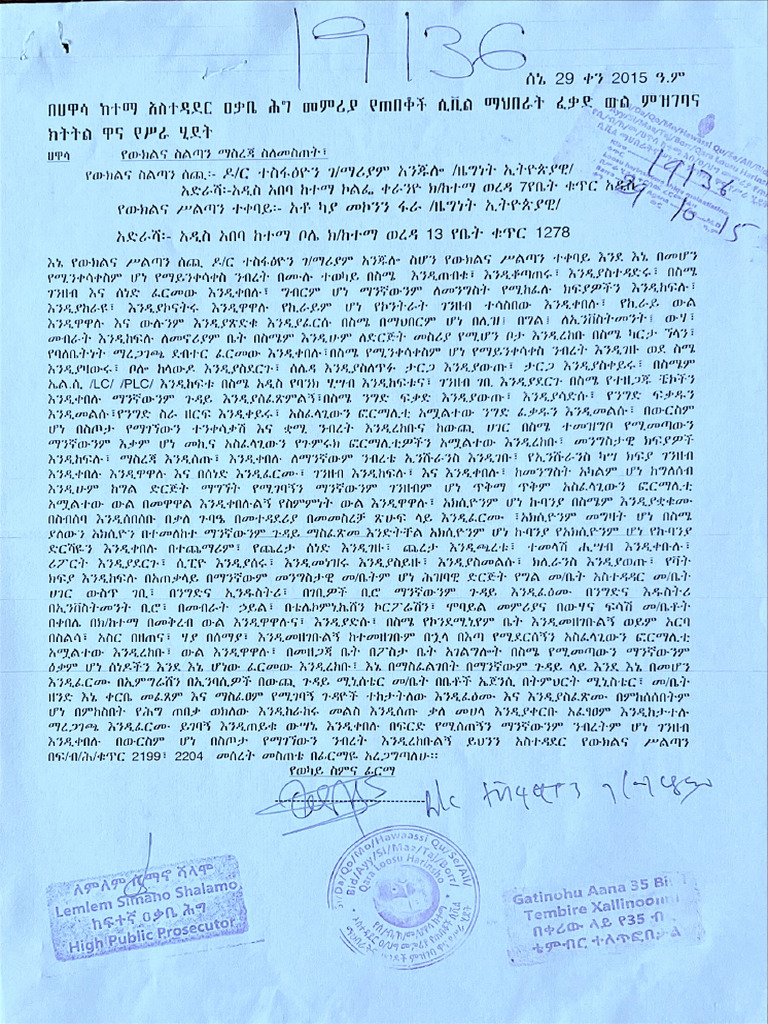 19136
ሰኔ 29 ቀን 2015 ዓ.ም
በሀዋሳ ከተማ አስተዳደር ዐቃቤ ሕግ መምሪያ የጠበቆች ሲቪል ማህበራት ፈቃድ ውል ምዝገባና
ክትትል ዋና የሥራ ሂደት
ሀዋሳ የውክልና ስልጣን ማስረጃ ስለመስጠት፣
የውክልና ስልጣን ሰጪ፡- ዶ/ር ተስፋዕዮን ገ/ማሪያም አንጁሎ /ዜግነት ኢትዮጵያዊ/
አድራሻ፡-አዲስ አበባ ከተማ ኮልፌ ቀራንዮ ክ/ከተማ ወረዳ 7የቤት ቁጥር አዲስ
የውክልና ሥልጣን ተቀባይ፡- አቶ ካያ መኮንን ፋራ /ዜግነት ኢትዮጵያዊ/
አድራሻ፡- አዲስ አበባ ከተማ ቦሌ ክ/ከተማ ወረዳ 13 የቤት ቁጥር 1278
19136
29-10-15
እኔ የውክልና ሥልጣን ሰጪ ዶ/ር ተስፋዕዮን ገ/ማሪያም አንጁሎ ስሆን የውክልና ሥልጣን ተቀባይ እንደ እኔ በመሆን
የሚንቀሳቀስም ሆነ የማይንቀሳቀስ ንብረት በሙሉ ተወካይ በስሜ እንዲጠብቁ፣ እንዲቆጣጠሩ፣ እንዲያስተዳድሩ፣ በስሜ
ገንዘብ እና ሰነድ ፈርመው እንዲቀበሉ፣ ግብርም ሆነ ማንኛውንም ለመንግስት የሚከፈሉ ክፍያዎችን እንዲከፍሉ፣
እንዲያከራዩ፣ እንዲያኮናትሩ እንዲዋዋሉ የኪራይም ሆነ የኮንትራት ገንዘብ ተሳስበው እንዲቀበሉ፣ የኪራይ ውል
እንዲዋዋሉ እና ውሉንም እንዲያጸድቁ እንዲያፈርሱ በስሜ በማህበርም ሆነ በሊዝ፣ በግል፣ ለኢንቨስትመንት፣ ውሃ፣
መብራት እንዲከፍሉ ለመኖሪያም ቤት በስሜም እንዲሁም ለድርጅት መስሪያ የሚሆን ቦታ እንዲረከቡ በስሜ ካርታ ፕላን፣
የባለቤትነት ማረጋገጫ ደብተር ፈርመው እንዲቀበሉ፣በስሜ የሚንቀሳቀስም ሆነ የማይንቀሳቀስ ንብረት እንዲገዙ ወደ ስሜ
እንዲያዛውሩ፣ ቦሎ ክላውዶ እንዲያስደርጉ፣ ሰሌዳ እንዲያስለጥፉ ታርጋ እንዲያወጡ፣ ታርጋ እንዲያስቀይሩ፣ በስሜም
ኤል.ሲ /LC/ /PLC/ እንዲከፍቱ በስሜ አዲስ የባንክ ሂሣብ እንዲከፍቱና፣ ገንዘብ ገቢ እንዲያደርጉ በስሜ የተዘጋጁ ቼኮችን
እንዲቀበሉ ማንኛውንም ጉዳይ እንዲያስፈጽሙልኝ፣በስሜ ንግድ ፍቃድ እንዲያወጡ፣ እንዲያሳድሱ፣ የንግድ ፍቃዱን
እንዲመልሱ፣የንግድ ስራ ዘርፍ እንዲቀይሩ፣ አስፈላጊውን ፎርማሊቲ አሟልተው ንግድ ፈቃዱን እንዲመልሱ፣ በውርስም
ሆነ በስጦታ የማገኘውን ተንቀሳቃሽ እና ቋሚ ንብረት እንዲረከቡና ከውጪ ሀገር በስሜ ተመዝግቦ የሚመጣውን
ማንኛውንም እቃም ሆነ መኪና አስፈላጊውን የጉምሩክ ፎርማሊቲዎችን አሟልተው እንዲረከቡ፣ መንግስታዊ ክፍያዎች
እንዲከፍሉ፣ ማስረጃ እንዲሰጡ፣ እንዲቀበሉ ለማንኛውም ንብረቴ ኢንሹራንስ እንዲገቡ፣ የኢንሹራንስ ካሣ ክፍያ ገንዘብ
እንዲቀበሉ እንዲዋዋሉ እና በሰነድ እንዲፈርሙ፣ ገንዘብ እንዲከፍሉ፣ እና እንዲቀበሉ፣ ከመንግስት አካልም ሆነ ከግለሰብ
እንዲሁም ከግል ድርጅት ማግኘት የሚገባኝን ማንኛውንም ገንዘብም ሆነ ጥቅማ ጥቅም አስፈላጊውን ፎርማሊቲ
አሟልተው ውል በመዋዋል እንዲቀበሉልኝ የስምምነት ውል እንዲዋዋሉ፣ አክሲዮንም ሆነ ኩባንያ በስሜም እንዲያቋቁሙ
በስብሰባ እንዲሰበሰቡ በቃለ ጉባዔ በመተዳደሪያ በመመስረቻ ጽሁፍ ላይ እንዲፈርሙ ፣አክሲዮንም መግዛት ሆነ በስሜ
ያለውን አክሲዮን በተመለከተ ማንኛውንም ጉዳይ ማስፈጸመ እንድትችል አክሲዮንም ሆነ ኩባንያ የአክሲዮንም ሆነ የኩባንያ
ድርሻዬን እንዲቀበሉ በተጨማሪም፣ የጨረታ ሰነድ እንዲገዙ፣ ጨረታ እንዲጫረቱ፣ ተመላሽ ሒሣብ እንዲቀበሉ፣
ሪፖርት እንዲያደርጉ፣ ሲፒዮ እንዲያሰሩ፣ እንዲመነዝሩ እንዲያስይዙ፣ እንዲያስመልሱ፣ ክሊራንስ እንዲያወጡ፣ የቫት
ክፍያ እንዲከፍሉ በአጠቃላይ በማንኛውም መንግስታዊ መ/ቤትም ሆነ ሕዝባዊ ድርጅት የግል መ/ቤት አስተዳደር መ/ቤት
ሀገር ውስጥ ገቢ፣ በንግድና ኢንዱስትሪ፣ በገቢዎች ቢሮ ማንኛውንም ጉዳይ እንዲፈፅሙ በንግድና ኢዱስትሪ
በኢንቨስትመንት ቢሮ፣ በመብራት ኃይል፣ በቴሌኮምኒኬሽን ኮርፖሬሽን፣ ሞባይል መምሪያና በውሃና ፍሳሽ መ/ቤቶች
በቀበሌ በክ/ከተማ በመቅረብ ውል እንዲዋዋሉና፣ እንዲያድሉ፣ በስሜ የኮንደሚኒየም ቤት እንዲመዘገቡልኝ ወይም አርባ
በስልሳ፣ አስር በዘጠና፣ ሃያ በሰማያ፣ እንዲመዘገቡልኝ ከተመዘገቡም በኋላ በእጣ የሚደርሰኝን አስፈላጊውን ፎርማሊቲ
አሟልተው እንዲረከቡ፣ ውል እንዲዋዋሉ፣ በመዘጋጃ ቤት በፖስታ ቤት አገልግሎት በስሜ የሚመጣውን ማንኛውንም
ዕቃም ሆነ ሰነዶችን እንደ እኔ ሆነው ፈርመው እንዲረከቡ፣ እኔ በማስፈልግበት በማንኛውም ጉዳይ ላይ እንደ እኔ በመሆን
እንዲፈርሙ በኢምግሬሽን በኢንባሲዎች በውጪ ጉዳይ ሚኒስቴር መ/ቤት በቤቶች ኤጀንሲ በትምህርት ሚኒስቴር፣ መ/ቤት
ዘንድ እኔ ቀርቤ መፈጸም እና ማስፈፀም የሚገባኝ ጉዳዮች ተከታትለው እንዲፈፅሙ እና እንዲያስፈጽሙ በምከሰስበትም
ሆነ በምከስበት የሕግ ጠበቃ ወክለው እንዲከራከሩ መልስ እንዲሰጡ ቃለ መሀላ እንዲያቀርቡ አፈፃፀም እንዲከታተሉ
ማረጋገጫ እንዲፈርሙ ይግባኝ እንዲጠይቁ ውሣኔ እንዲቀበሉ በፍርድ የሚሰጠኝን ማንኛውንም ንብረትም ሆነ ገንዘብ
እንዲቀበሉ በውርስም ሆነ በስጦታ የማገኘውን ንብረት እንዲረከቡልኝ ይህንን አስተዳደር የውክልና ሥልጣን
በፍ/ብ/ሕ/ቁጥር 2199፣ 2204 መሰረት መስጠቴ በፊርማዬ አረጋግጣለሁ።
የወካይ ስምና ፊርማ
ለምለም ሲማኖ ሻላሞ
Lemlem Simano Shalamo
ከፍተኛ ዐቃቤ ሕግ
High Public Prosecutor
Qara Loosu Harinsho
Gatinohu Aana 35 Bi
Tembire Xallinoonni
በቀሪው ላይ የ35 ብ
ቴምብር ተለጥፎበታል